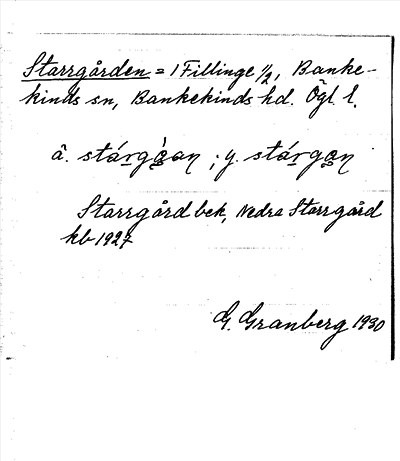 Starrgården = 1 Fillinge 1/2, Banke-
kinds sn, Bankekinds hd. Ögl. l.
ä. stárgå̀an ; y. stárgan
Starrgård bek, Nedra Starrgård
kb 1927
G. Granberg 1930